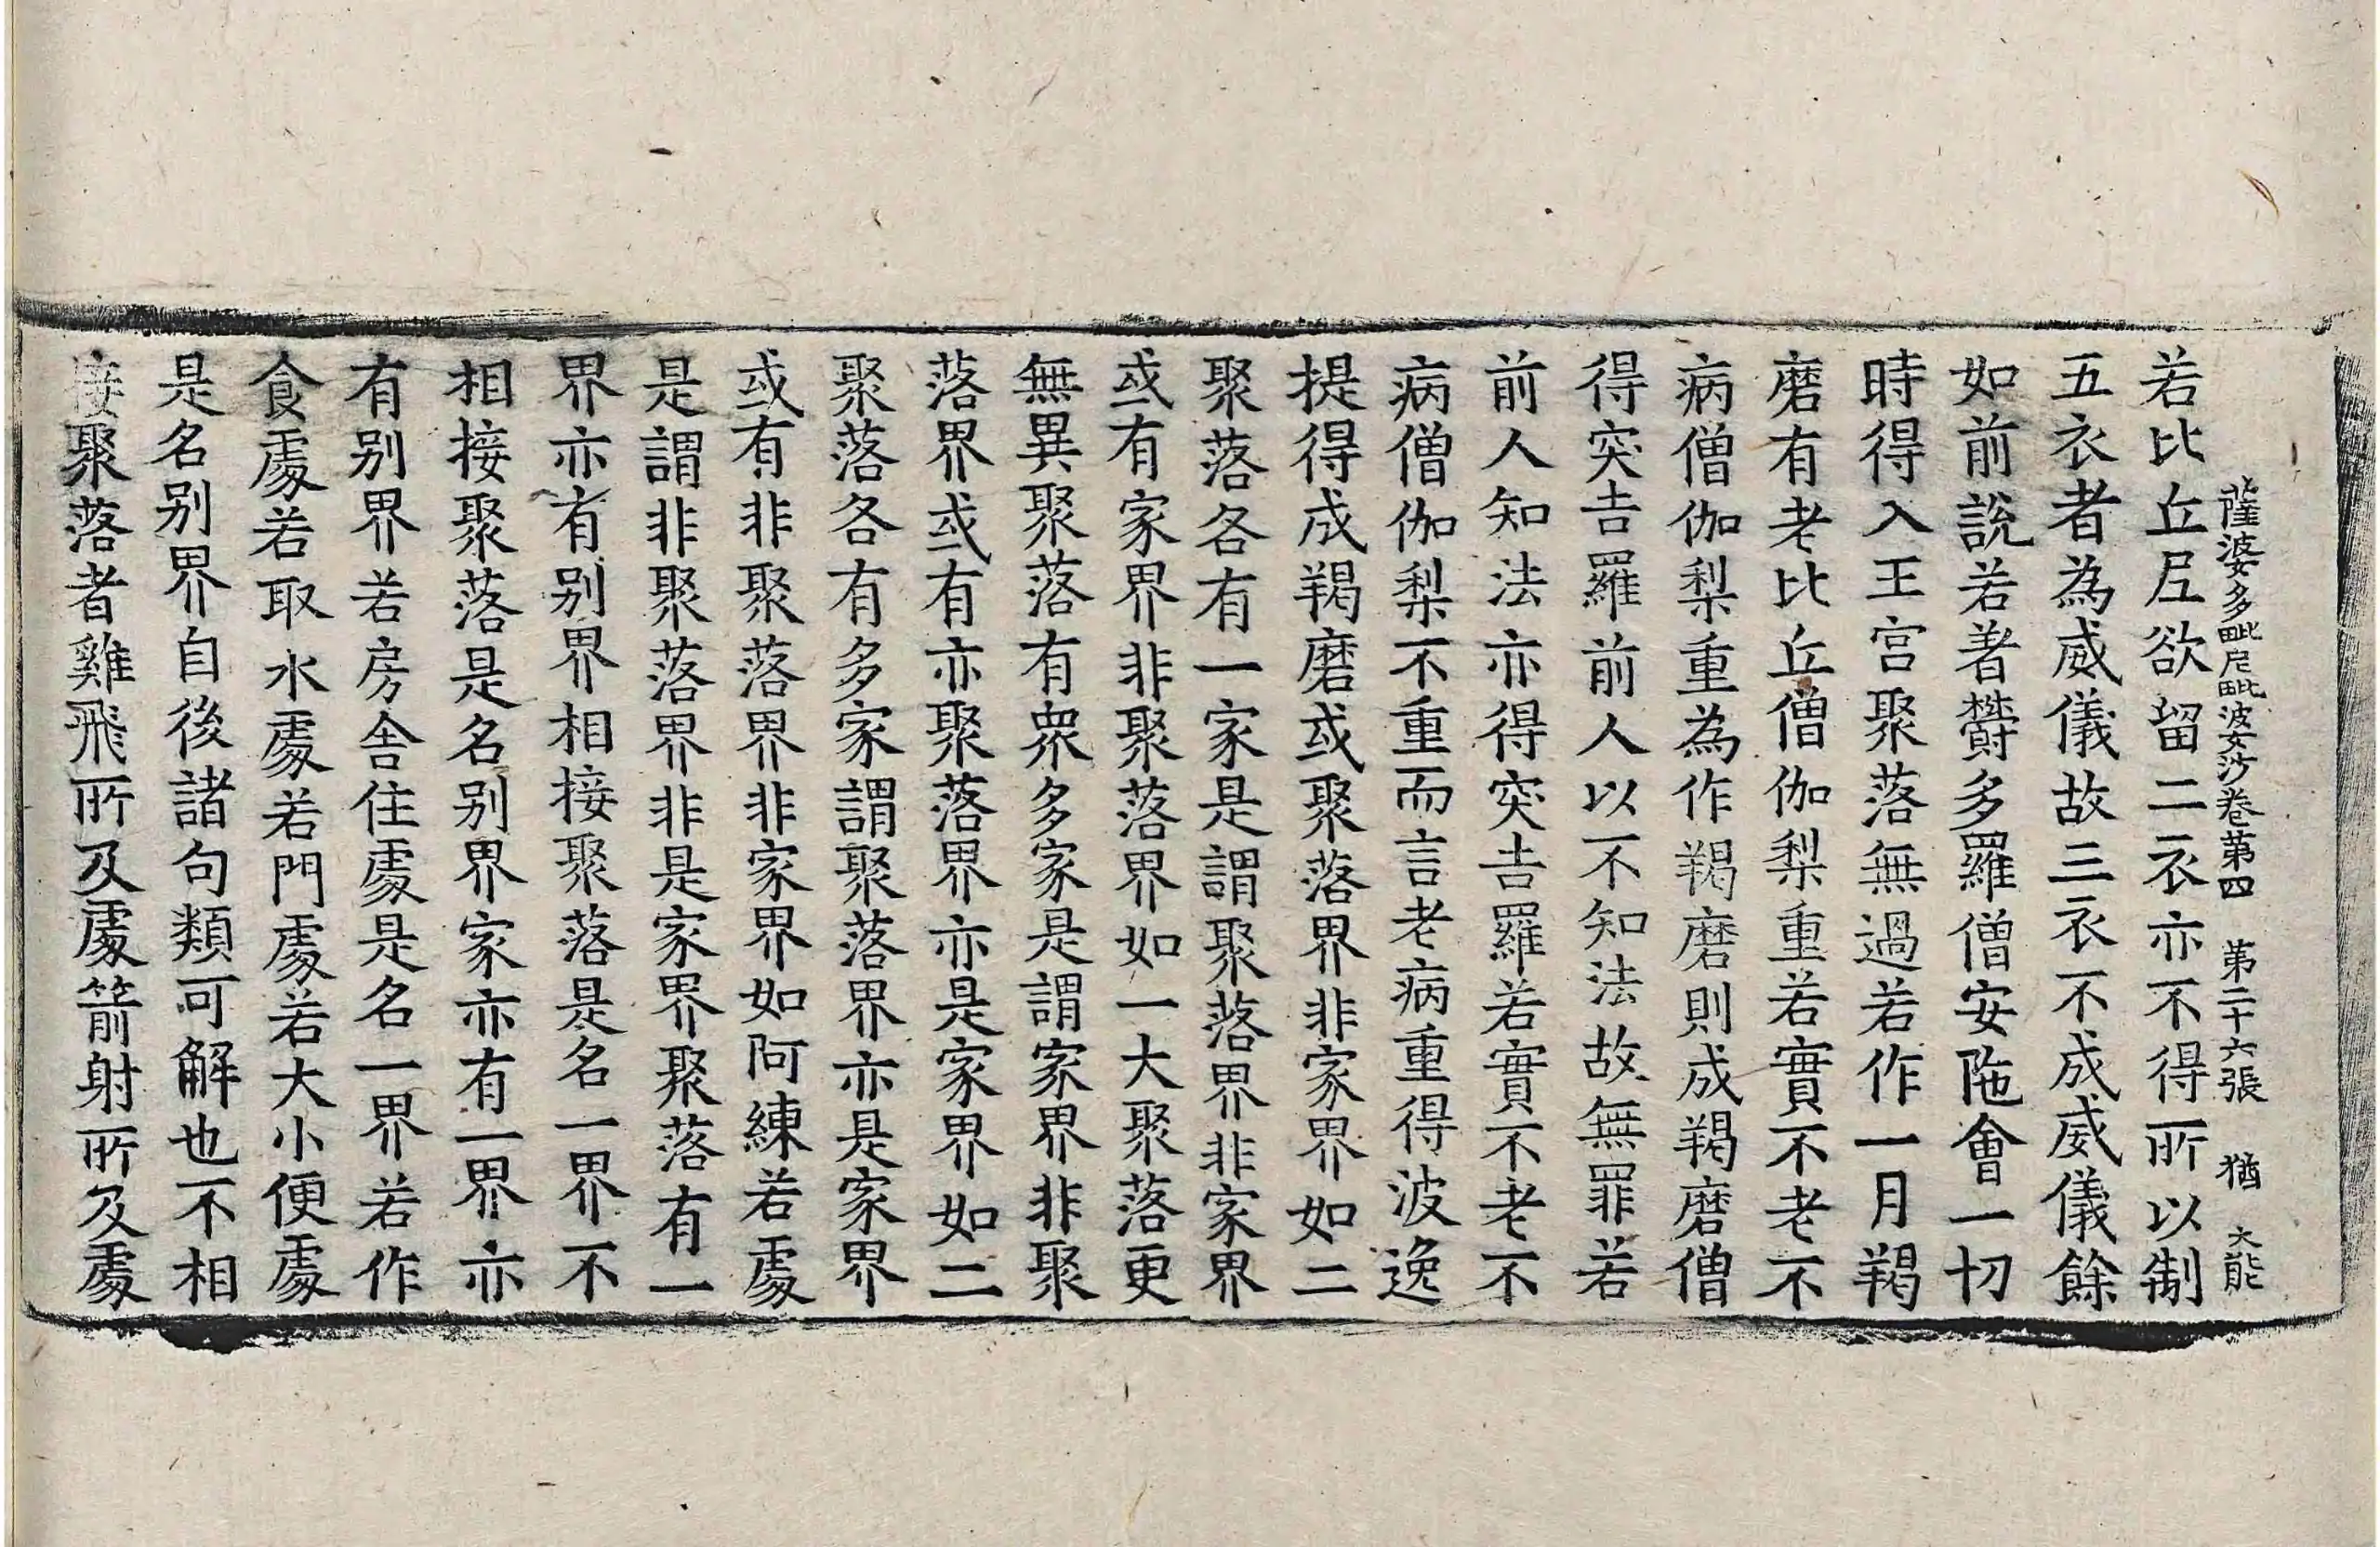 薩婆多毗尼毗婆沙卷苐四　苐二十六張　猶　大能
若比丘尼欲留二衣亦不得所以制
五衣者為威儀故三衣不成威儀餘
如前說若著欝多羅僧安陁會一切
時得入王宮聚落無過若作一月羯
磨有老比丘僧伽梨重若實不老不
病僧伽梨重為作羯磨則成羯磨僧
得突吉羅前人以不知法故無罪若
前人知法亦得突吉羅若實不老不
病僧伽梨不重而言老病重得波逸
提得成羯磨或聚落界非家界如二
聚落各有一家是謂聚落界非家界
或有家界非聚落界如一大聚落更
無異聚落有衆多家是謂家界非聚
落界或有亦聚落界亦是家界如二
聚落各有多家謂聚落界亦是家界
或有非聚落界非家界如阿練若處
是謂非聚落界非是家界聚落有一
界亦有别界相接聚落是名一界不
相接聚落是名别界家亦有一界亦
有别界若房舍住處是名一界若作
食處若取水處若門處若大小便處
是名别界自後諸句類可解也不相
接聚落者雞飛所及處箭射所及處